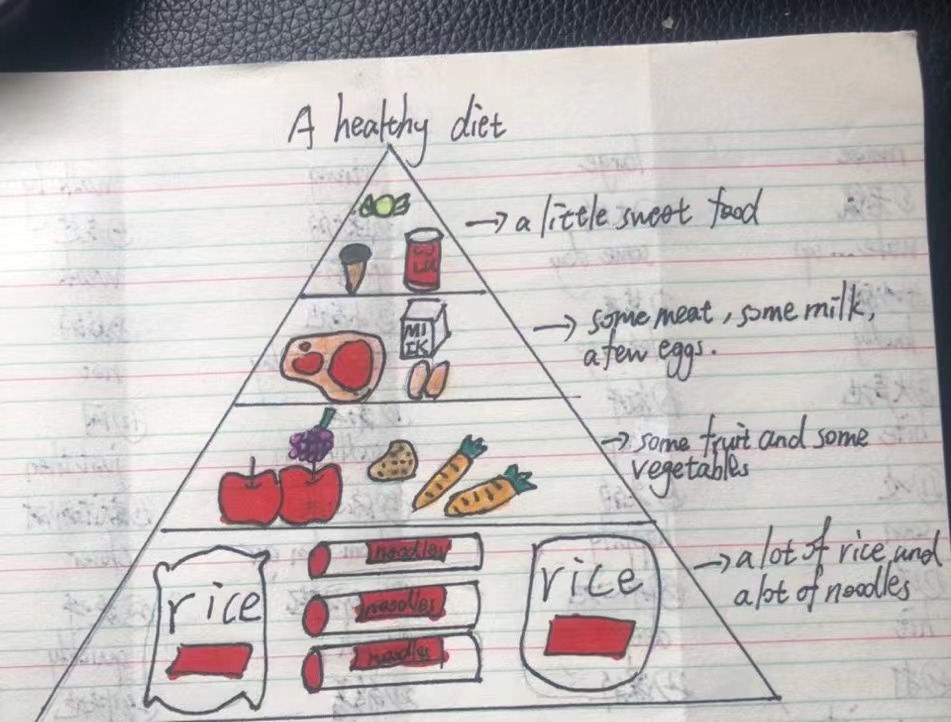 A healthy diet
→ a little sweet food
→ some meat, some milk,
a few eggs.
MI
LK
→ some fruit and some
vegetables
noodles
noodles
noodles
rice
rice
→ a lot of rice and
a lot of noodles